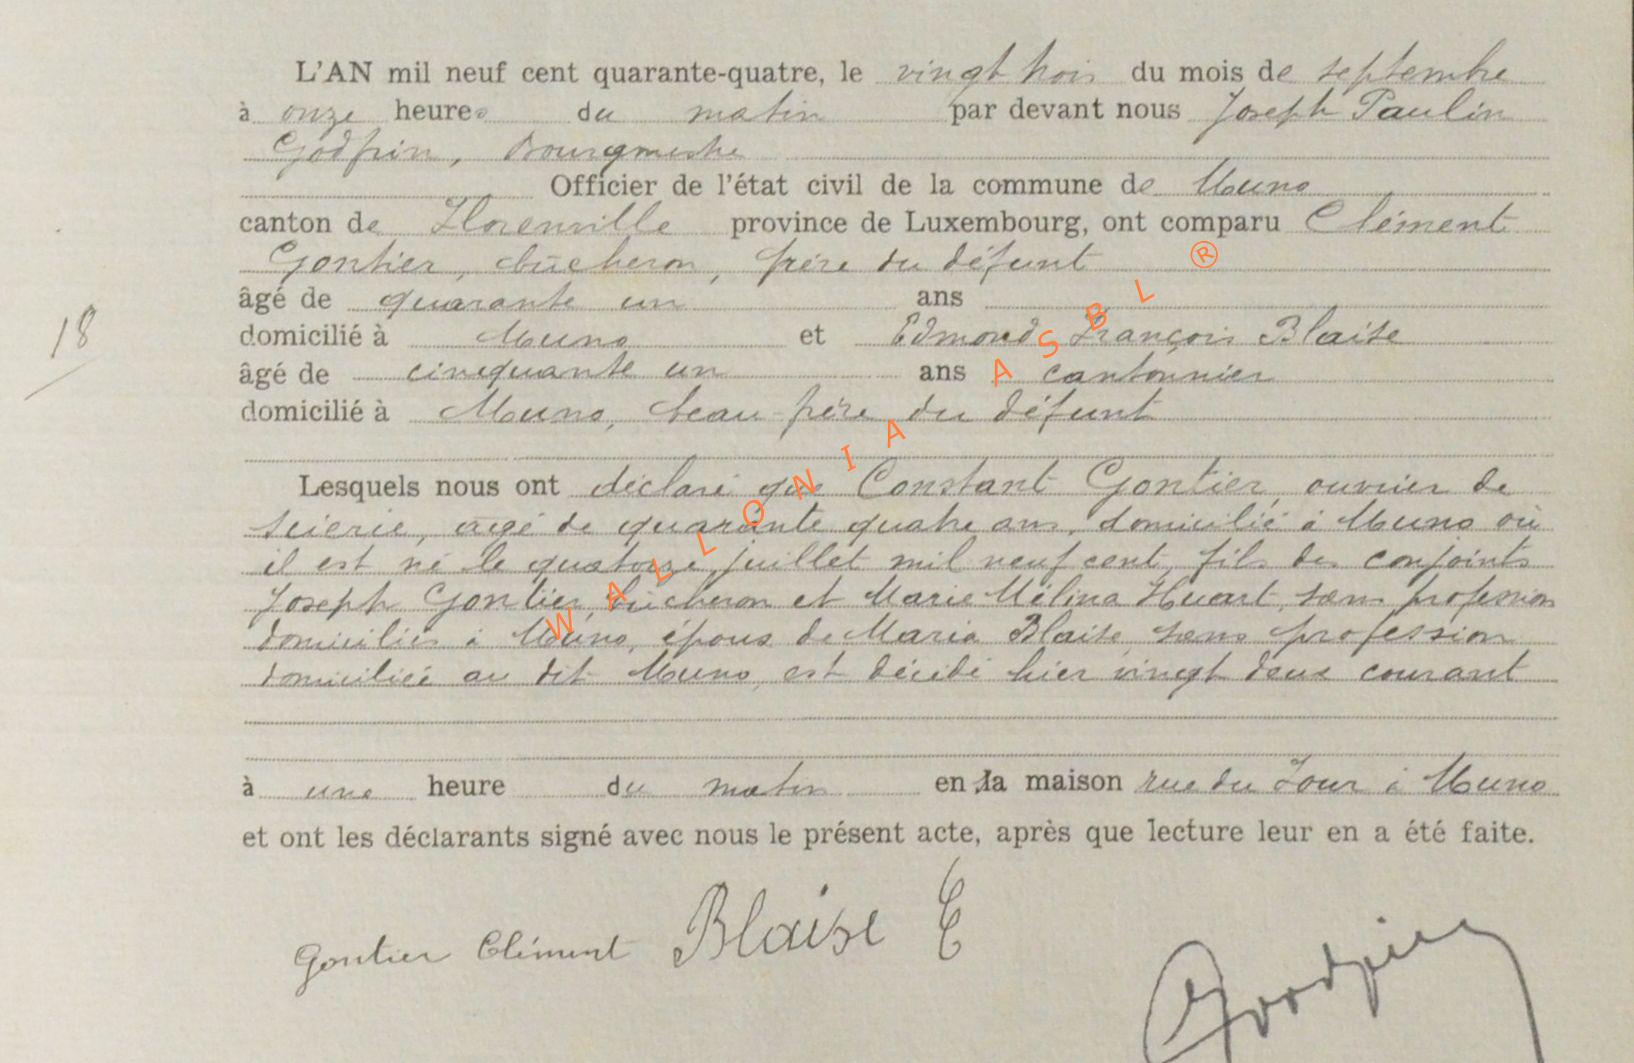 L'AN mil neuf cent quarante-quatre, le vingt trois du mois de septembre
à onze heures du matin par devant nous Joseph Paulin
Godfrin, Bourgmestre
Officier de l'état civil de la commune de Muno
canton de Florenville province de Luxembourg, ont comparu Clément
Gontier, bûcheron, frère du défunt
âgé de quarante un ans
domicilié à Muno et Edmond François Blaise
âgé de cinquante un ans cantonnier
domicilié à Muno, beau-frère du défunt
18
Lesquels nous ont déclaré que Constant Gontier, ouvrier de
scierie, âgé de quarante quatre ans, domicilié à Muno où
il est né le quatorze juillet mil neuf cent, fils des conjoints
Joseph Gontier, bûcheron et Marie Mélina Huart, sans profession
domiciliés à Muno, époux de Maria Blaise, sans profession
domiciliée au dit Muno, est décédé hier vingt deux courant
à une heure du matin en sa maison rue du Four à Muno
et ont les déclarants signé avec nous le présent acte, après que lecture leur en a été faite.
Gontier Clément Blaise E
Godfrin
WALLONIA ASBL ®